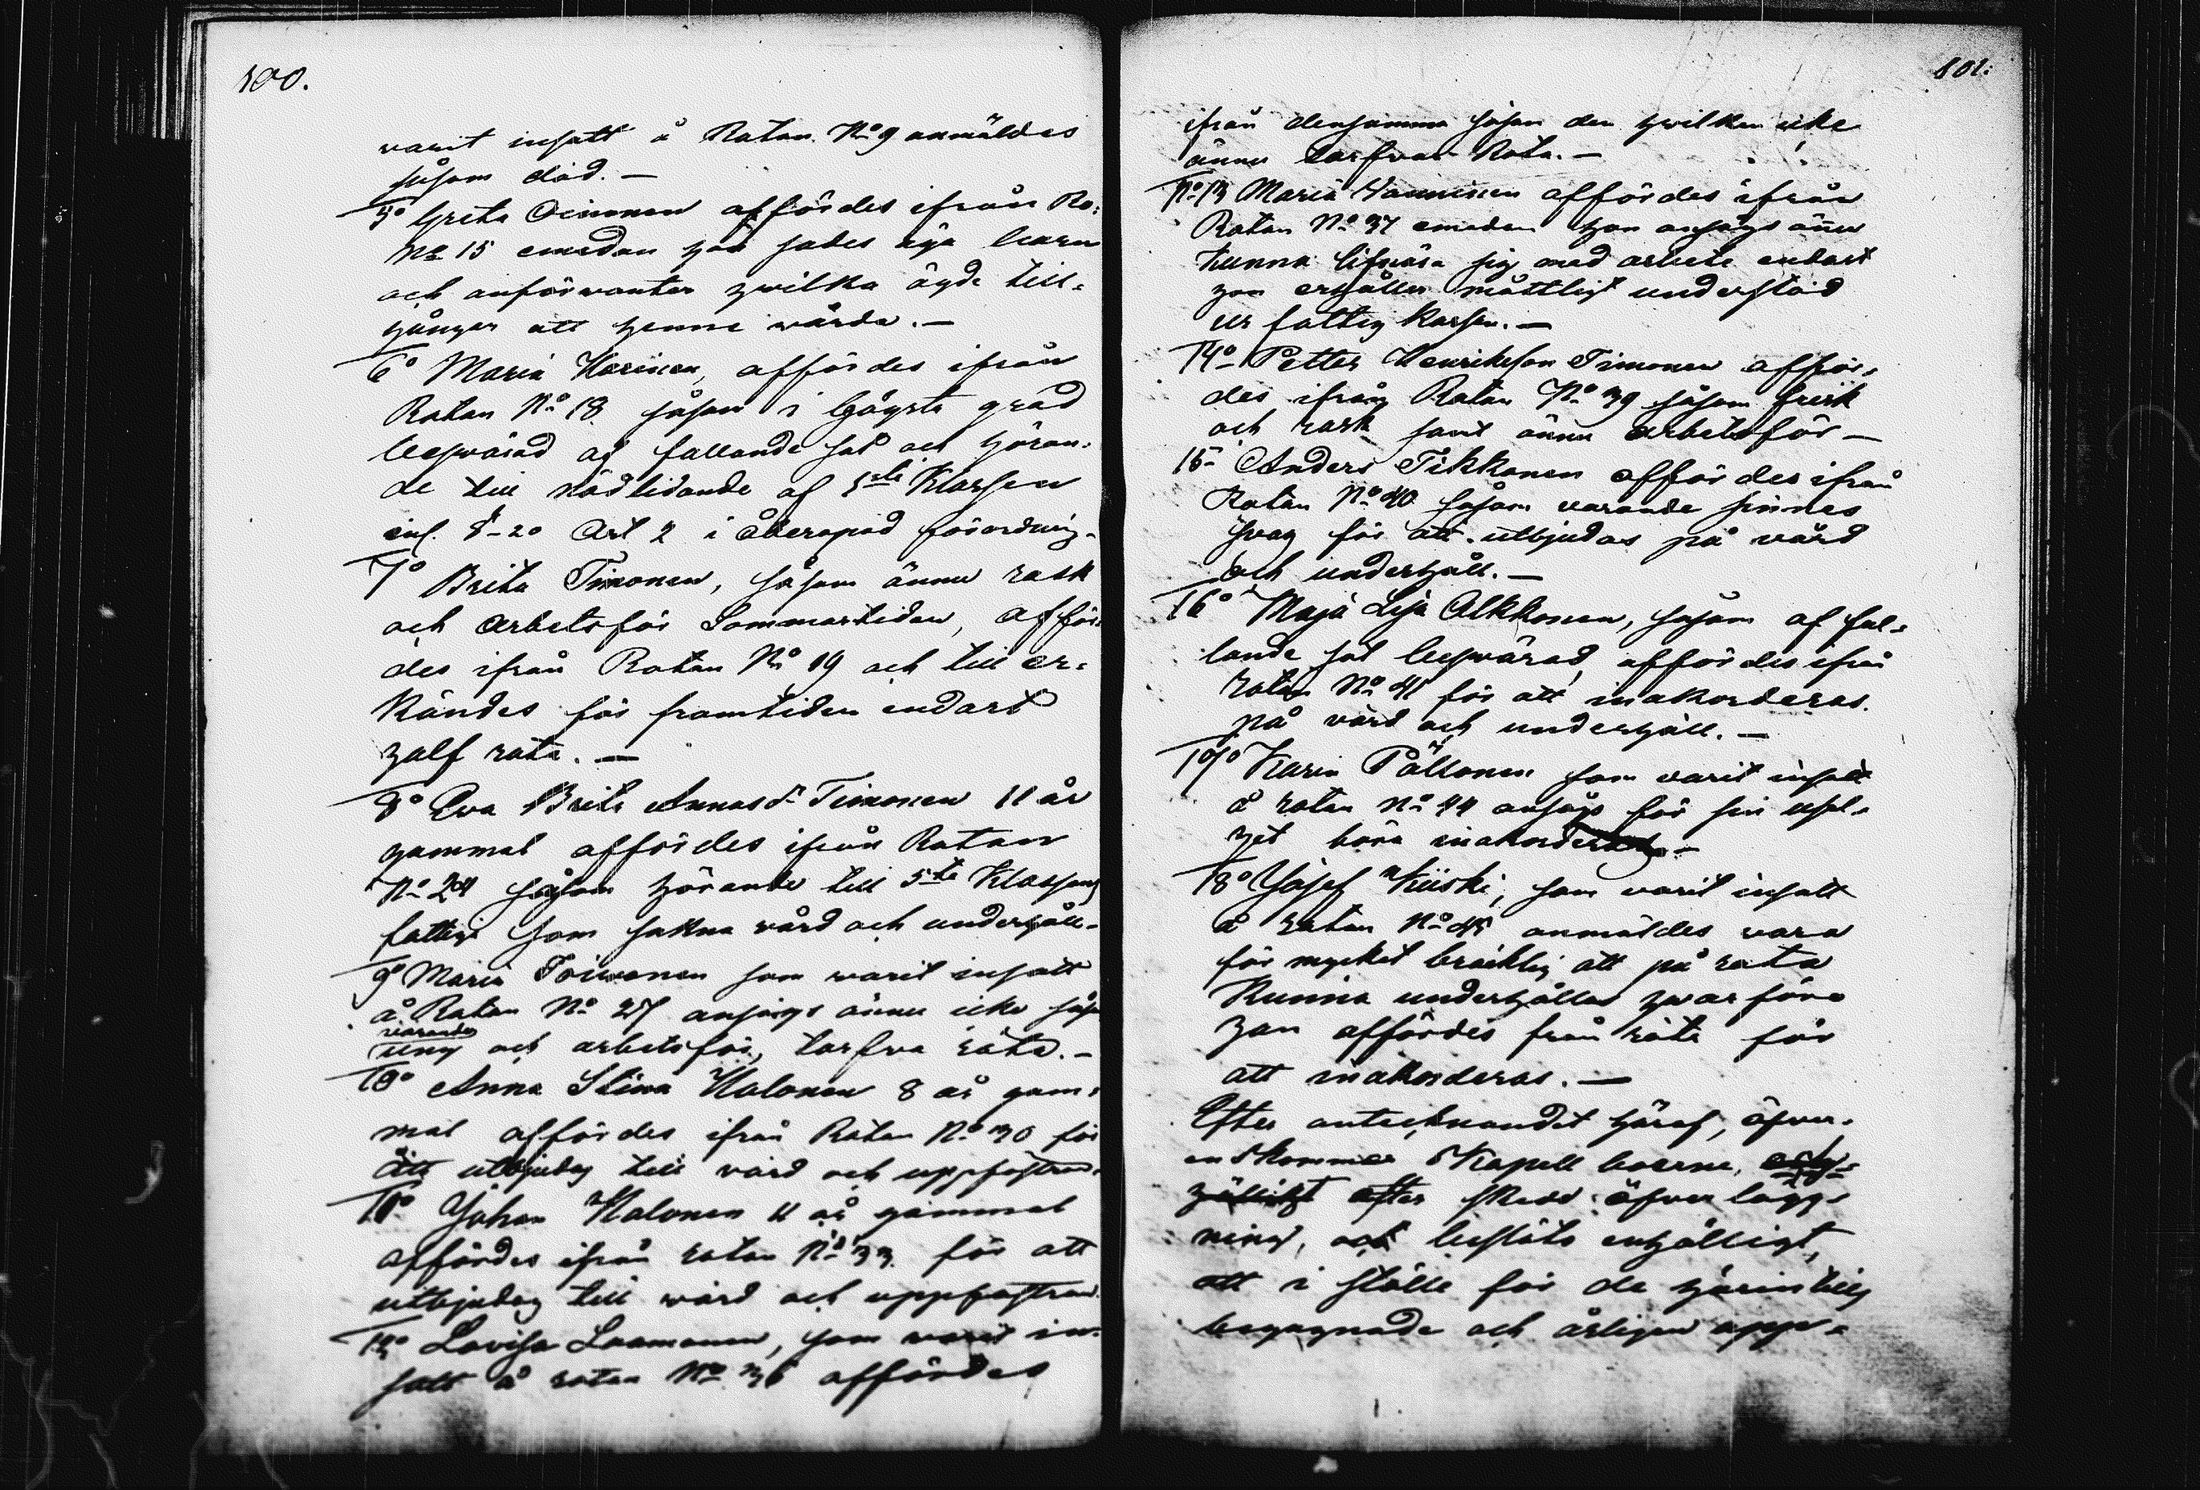 100.
varit insatt å Rotan No 9 anmäldes
såsom död. —
5o Greta Oinonen affördes ifrån Ro=
No 15 emedan hon sades äga barn
och anförwanter hvilka ägde till=
gångar att henne wårda. —
6o Maria Harinen, affördes ifrån
Rotan No 18 såsom i högsta grad
beswärad af fallande sot och höran=
de till nödlidande af 5te Klassen
enl. § 20 Art 2 i åberopad förordning.
7o Brita Timonen, såsom ännu rask
och arbetsför Sommartiden, afför=
des ifrån Rotan No 19 och till er=
kändes för framtiden endast
half rota. —
8o Eva Brita Annasdr Timonen 11 år
gammal affördes ifrån Rotan
No 24 såsom hörande till 5te Klassens
fattige som sakna vård och underhåll.
9o Maria Toiwonen som warit insatt
å Rotan No 27 ansågs ännu icke såsom
varande
ung och arbetsför, tarfva rota. —
10o Anna Stina Halonen 8 år gam=
mal affördes ifrån Rotan No 30 för
att utbjudas till vård och uppfostran.
11o Johan Halonen 11 år gammal
affördes ifrån rotan No 33 för att
utbjudas till wård och uppfostran.
12o Lovisa Laamanen, som warit in=
satt å rotan No 36 affördes
101:
ifrån densamma såsom den hvilken icke
ännu tarfvar Rota. —
No 13 Maria Vanninen affördes ifrån
Rotan No 37 emedan hon ansågs ännu
kunna lifnära sig med arbete endast
hon erhåller måttligt understöd
ur fattig kassan. —
14o Petter Henriksson Timonen afför=
des ifrån Rotan No 39 såsom frisk
och rask samt ännu arbetsför —
15o Anders Tikkanen affördes ifrån
Rotan No 40 såsom varande sinnes
svag för att utbjudas på vård
och underhåll. —
16o Maja Lisa Alkkonen, såsom af fal=
lande sot beswärad, affördes ifrån
rotan No 41 för att inakorderas
på vård och underhåll. —
17o Karin Pällonen som varit insatt
å rotan No 44 ansågs för sin
höra inakorderas —
18o Josef Kiiski, som varit insatt
å rotan No 45 anmäldes vara
för mycket bräcklig att på rota
kunna underhållas hvarföre
han affördes från rota för
att inakorderas. —
Efter antecknandet häraf, öfver=
enskommer Kapell boerne,
efter skedd öfverlägg=
ning, och beslöts enhälligt,
att i ställe för de härintills
begagnade och årligen upp=